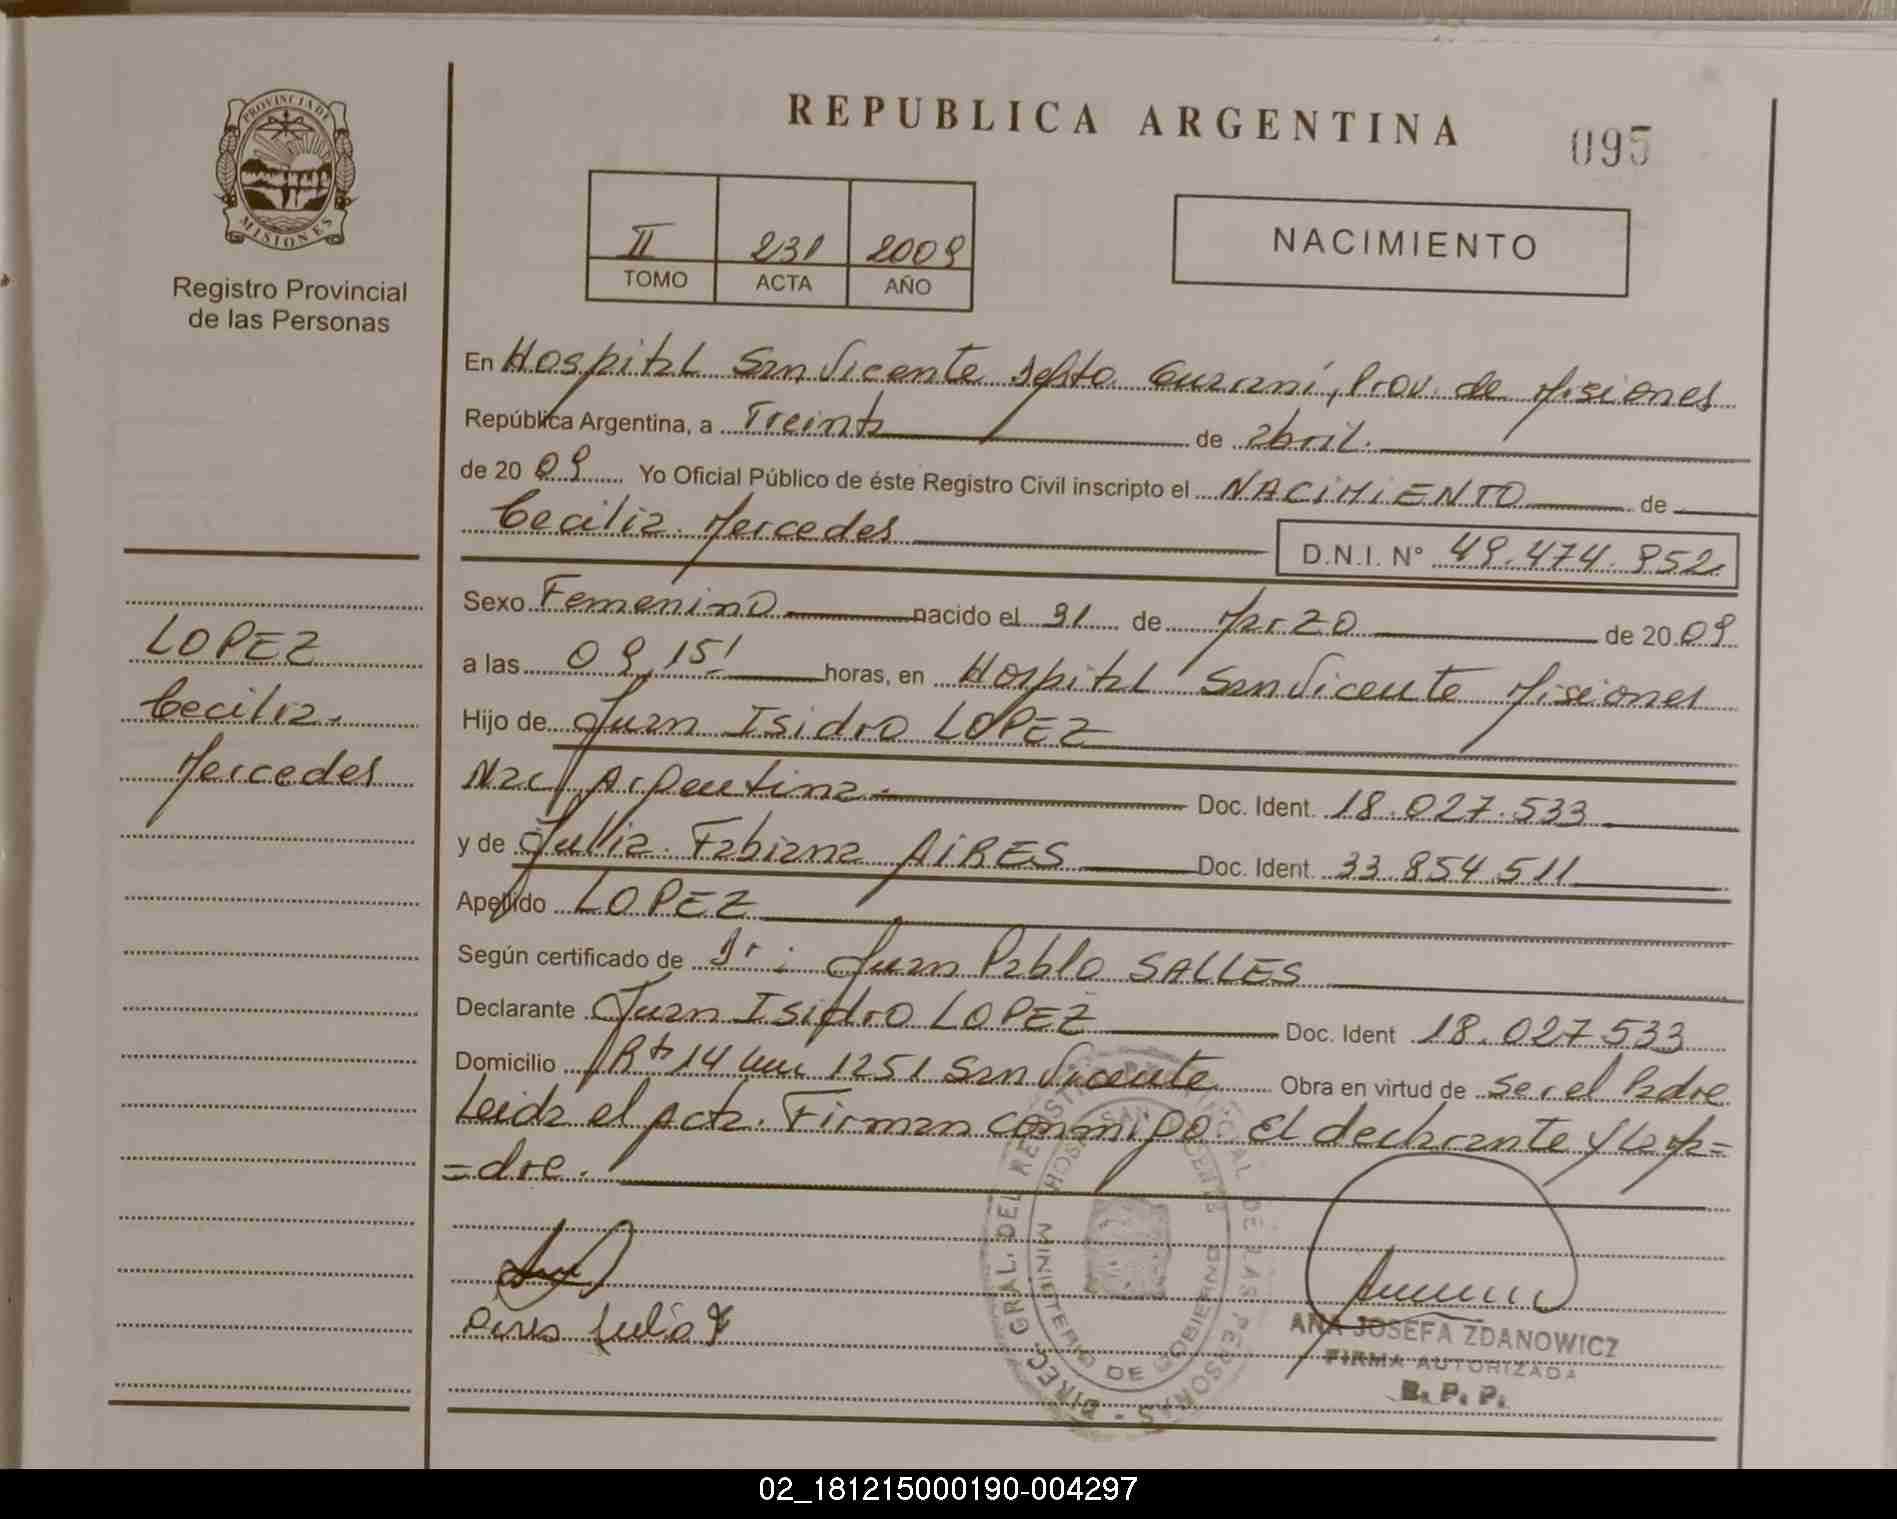 REPUBLICA ARGENTINA
095
PROVINCIA DE
MISIONES
Registro Provincial
de las Personas
II 231 2009
TOMO ACTA AÑO
NACIMIENTO
En Hospital San Vicente Depto. Guaraní, Prov. de Misiones
República Argentina, a Treinta de abril.
de 20 09 Yo Oficial Público de éste Registro Civil inscripto el NACIMIENTO de
Cecilia Mercedes
D.N.I. N° 49.474.952
Sexo Femenino nacido el 31 de Marzo de 20 09
a las 09,15' horas, en Hospital San Vicente Misiones
Hijo de Juan Isidro LOPEZ
Nac. Argentina.- Doc. Ident. 18.027.533
y de Julia Fabiana AIRES Doc. Ident. 33.854.511
Apellido LOPEZ
Según certificado de Dr: Juan Pablo SALLES
Declarante Juan Isidro LOPEZ Doc. Ident 18.027.533
Domicilio Rta 14 km 1251 San Vicente Obra en virtud de ser el Padre
Leida el Acta. Firman conmigo El declarante y la Ma=
=dre.
LOPEZ
Cecilia
Mercedes
DIREC. GRAL. DEL REGISTRO PROVINCIAL DE LAS PERSONAS -
HOSP. SAN VICENTE
MINISTERIO DE GOBIERNO
Aires Julia F
ANA JOSEFA ZDANOWICZ
FIRMA AUTORIZADA
R. P. P.
02_181215000190-004297